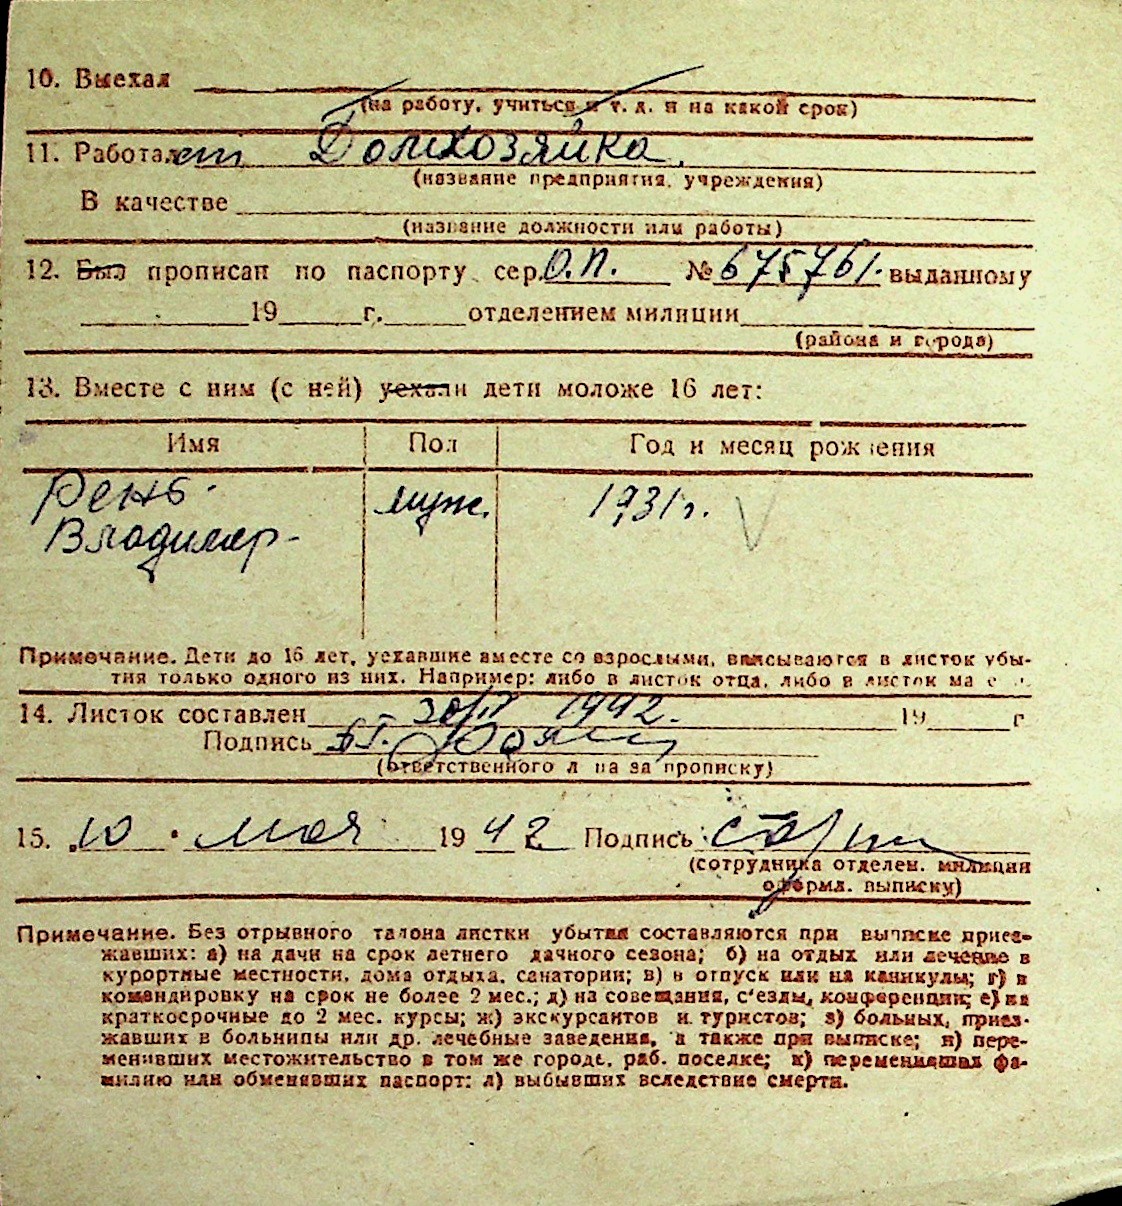 10. Выехал
(на работу, учиться и т. д. и на какой срок)
11. Работает Домхозяйка.
(название предприятия, учреждения)
В качестве
(название должности или работы)
12. Был прописан по паспорту сер. О.П. № 675761. выданному
19 г. отделением милиции
(района и города)
13. Вместе с ним (с ней) уехали дети моложе 16 лет:
Имя Пол Год и месяц рождения
Рень муж. 1931 г.
Владимир
Примечание. Дети до 16 лет, уехавшие вместе со взрослыми, вписываются в листок убы-
тия только одного из них. Например: либо в листок отца, либо в листок
14. Листок составлен 30/IV 1942. 19 г
Подпись
(ответственного лица за прописку)
15. 10 мая 1942 Подпись
(сотрудника отделен. милиции
оформл. выписку)
Примечание. Без отрывного талона листки убытия составляются при выписке приез-
жавших: а) на дачи на срок летнего дачного сезона; б) на отдых или лечение в
курортные местности, дома отдыха, санатории; в) в отпуск или на каникулы; г) в
командировку на срок не более 2 мес.; д) на совещания, с'езды, конференции; е) на
краткосрочные до 2 мес. курсы; ж) экскурсантов и туристов; з) больных, приез-
жавших в больницы или др. лечебные заведения, а также при выписке; и) пере-
менивших местожительство в том же городе, раб. поселке; к) переменивших фа-
милию или обменявших паспорт; л) выбывших вследствие смерти.